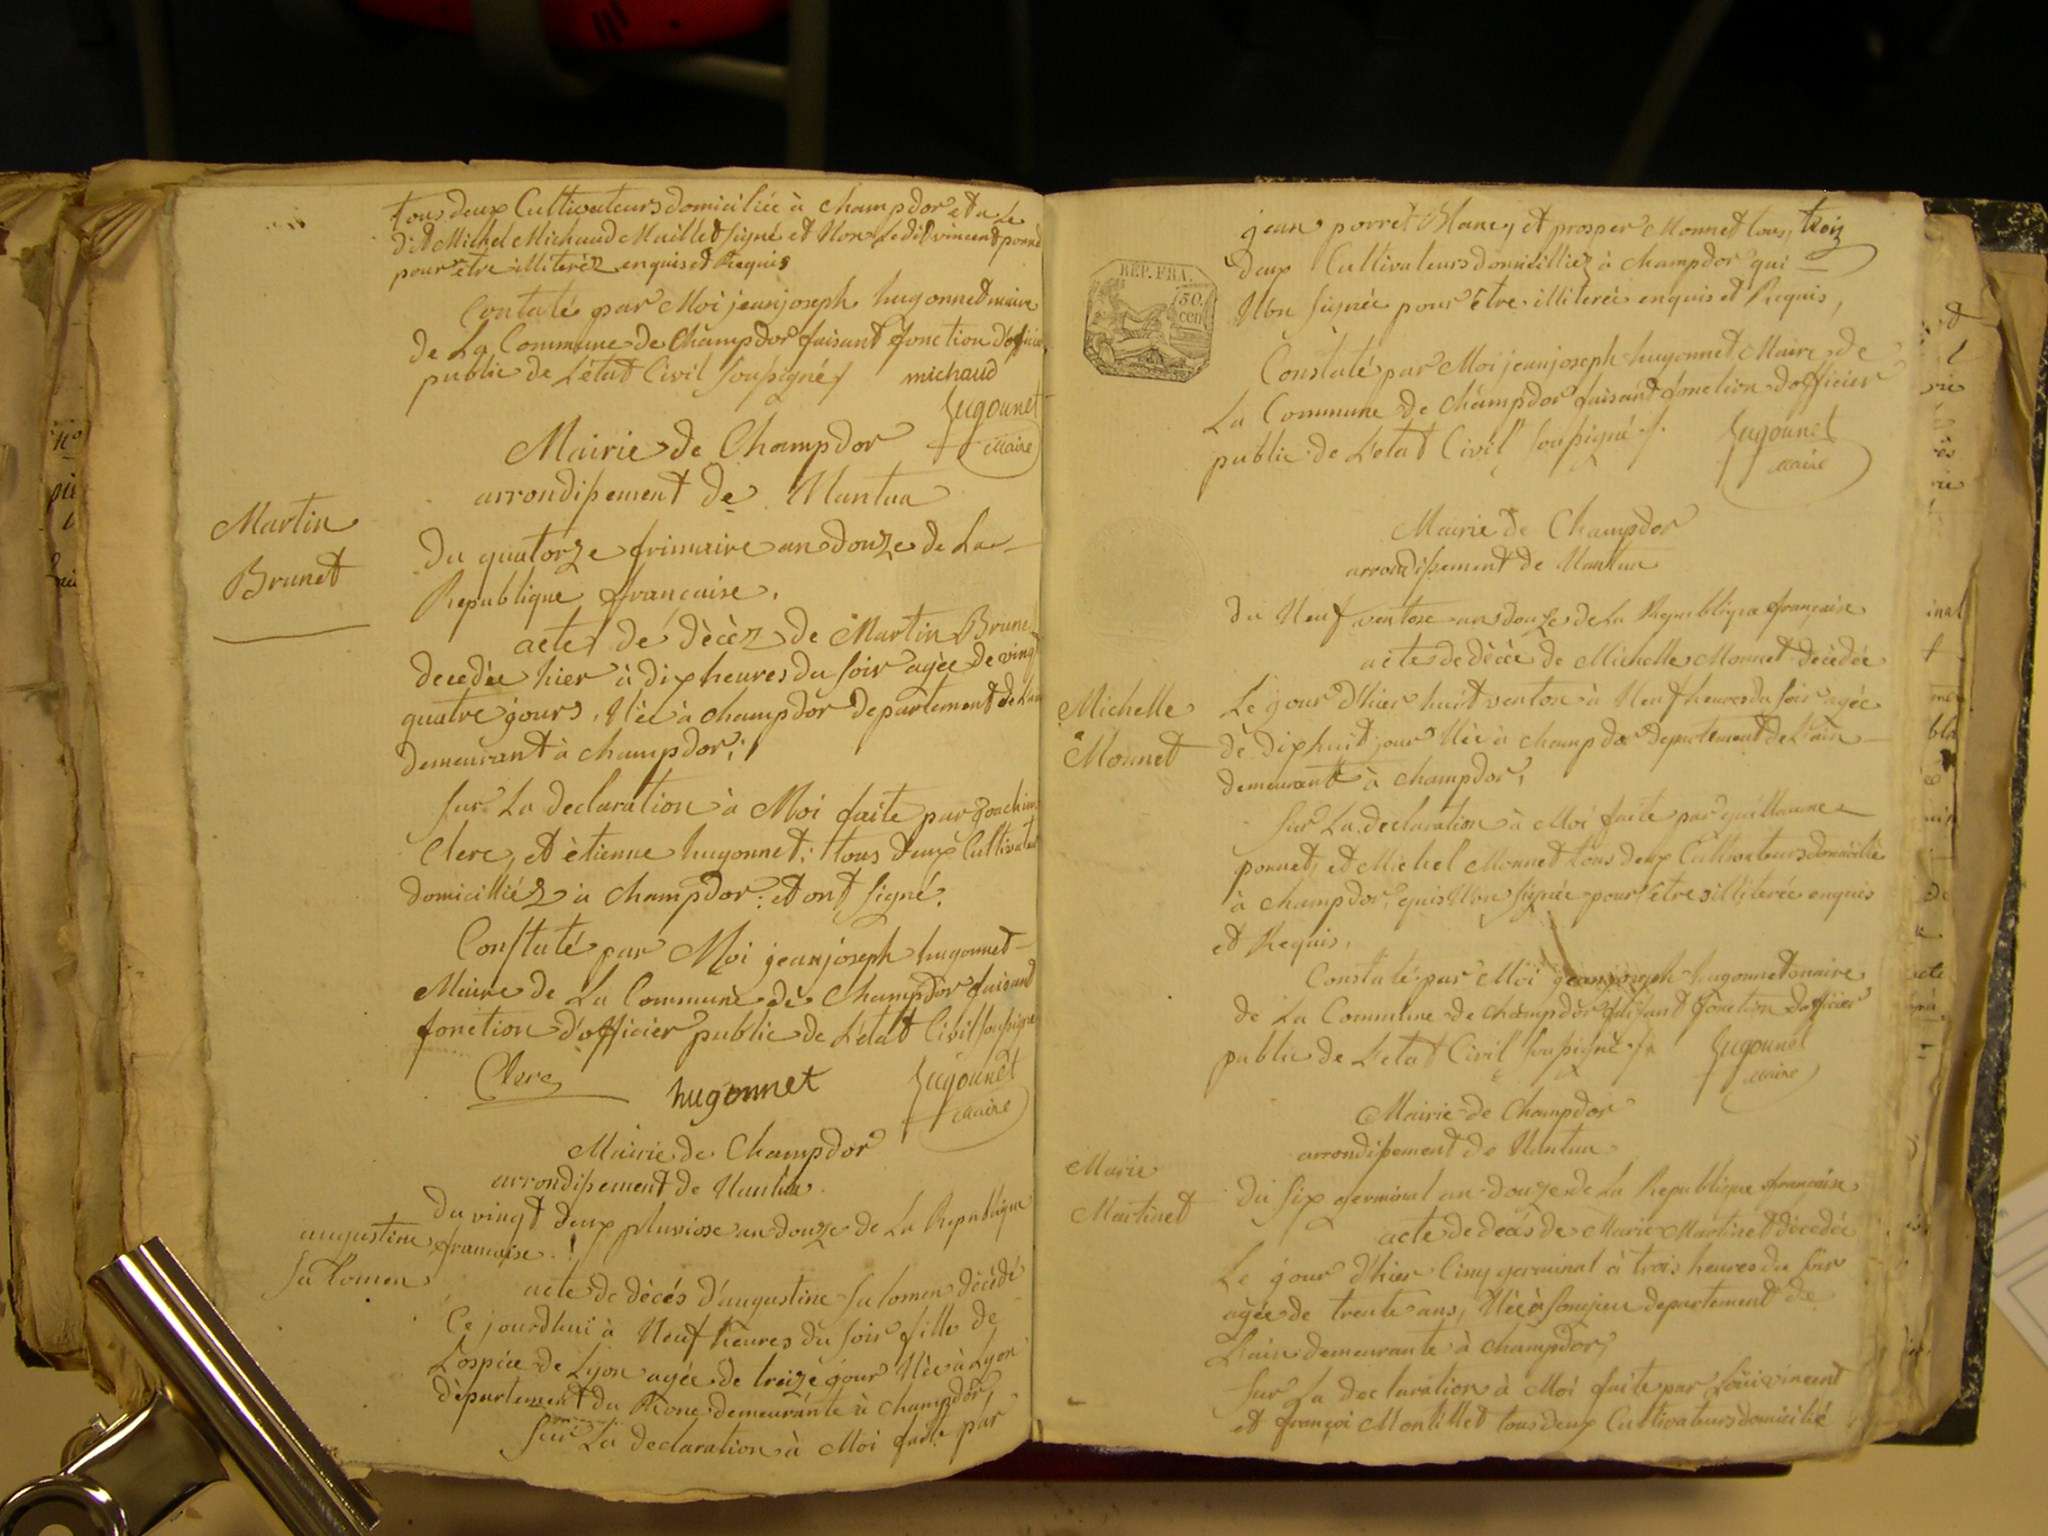 tous deux Cultivateurs domiciliée à champdor et a Le
dit Michel Michaud Maillet signé et Non Ledit vincent ponné
pour être illiteréz enquis et Requis
Contaté par Moi jean joseph hugonnet maire
de La Commune de Champdor faisant fonction d'officier
public de L'état Civil soussigné /. michaud
hugonnet
Maire
Mairie de Champdor
arrondissement de Nantua
Martin
Brunet
Du quatorze frimaire an douze de La
Republique francaise.
acte de dècèz de Martin Brune
decedée hier à dix heures du soir agèe de vingt
quatre jours, Néè à champdor departement de Lain
demeurant à champdor;
sur La declaration à Moi faite par joachim
Clerc, et ètienne hugonnet; tous deux Cultivateur
domicilliéz à champdor: et ont signé.
Constaté par Moi jean joseph hugonnet
Maire de La Commune de Champdor faisant
fonction d'officier public de L'état Civil soussigné
Clerc hugonnet hugonnet
Maire
Mairie de Champdor
arrondissement de Nantua
Du vingt deux pluviose an douze de La Republique
francaise.
augustine
salomen
acte de dècés d'augustine salomen dècédé
Ce jourdhui à Neuf heures du soir fille de
L'ospice de Lyon agée de treize jour Nèe à Lyon
département du Rone demeurante à champdor,
sur La declaration à Moi faite par
trois
jean porret Blanc, et prosper Monnet tous
deux Cultivateurs domicilliéz à champdor qui
Non signée pour être illiterée enquis et Requis,
REP. FRA.
50.
cen.
Constaté par Moi jean joseph hugonnet Maire de
La Commune de champdor faisant fonction d'officier
public de L'etat Civil soussigné /.
hugonnet
Maire
Mairie de Champdor
arrondissement de Nantua
du Neuf ventose an douze de La Republique française
acte de dècèe de Michelle Monnet dècèdée
Michelle
Monnet
Le jour d'hier huit ventos à Neuf heures du soir agée
de dixhuit jour Nèe à champdor departement de L'ain
demeurant à champdor,
sur La declaration à Moi faite par guillaume
ponnet, et Michel Monnet tous deux Cultivateurs domicilié
à champdor, quis Non signée pour être illiterée enquis
et Requis,
Constaté par Moi jean joseph hugonnet maire
de La Commune de champdor faisant fonction d'officier
public de L'etat Civil soussigné /.
hugonnet
Maire
Mairie de Champdor
arrondissement de Nantua
Marie
Martinet
Du six germinal an douze de La Republique française
acte de decès de Marie Martinet dècedée
Le jour d'hier Cinq germinal à trois heures du soir
agée de trente ans, Nèe à Songieu departement de
L'ain demeurante à champdor,
sur La declaration à Moi faite par Loui vincent
et françoi Montillet tous deux Cultivateurs domicilié